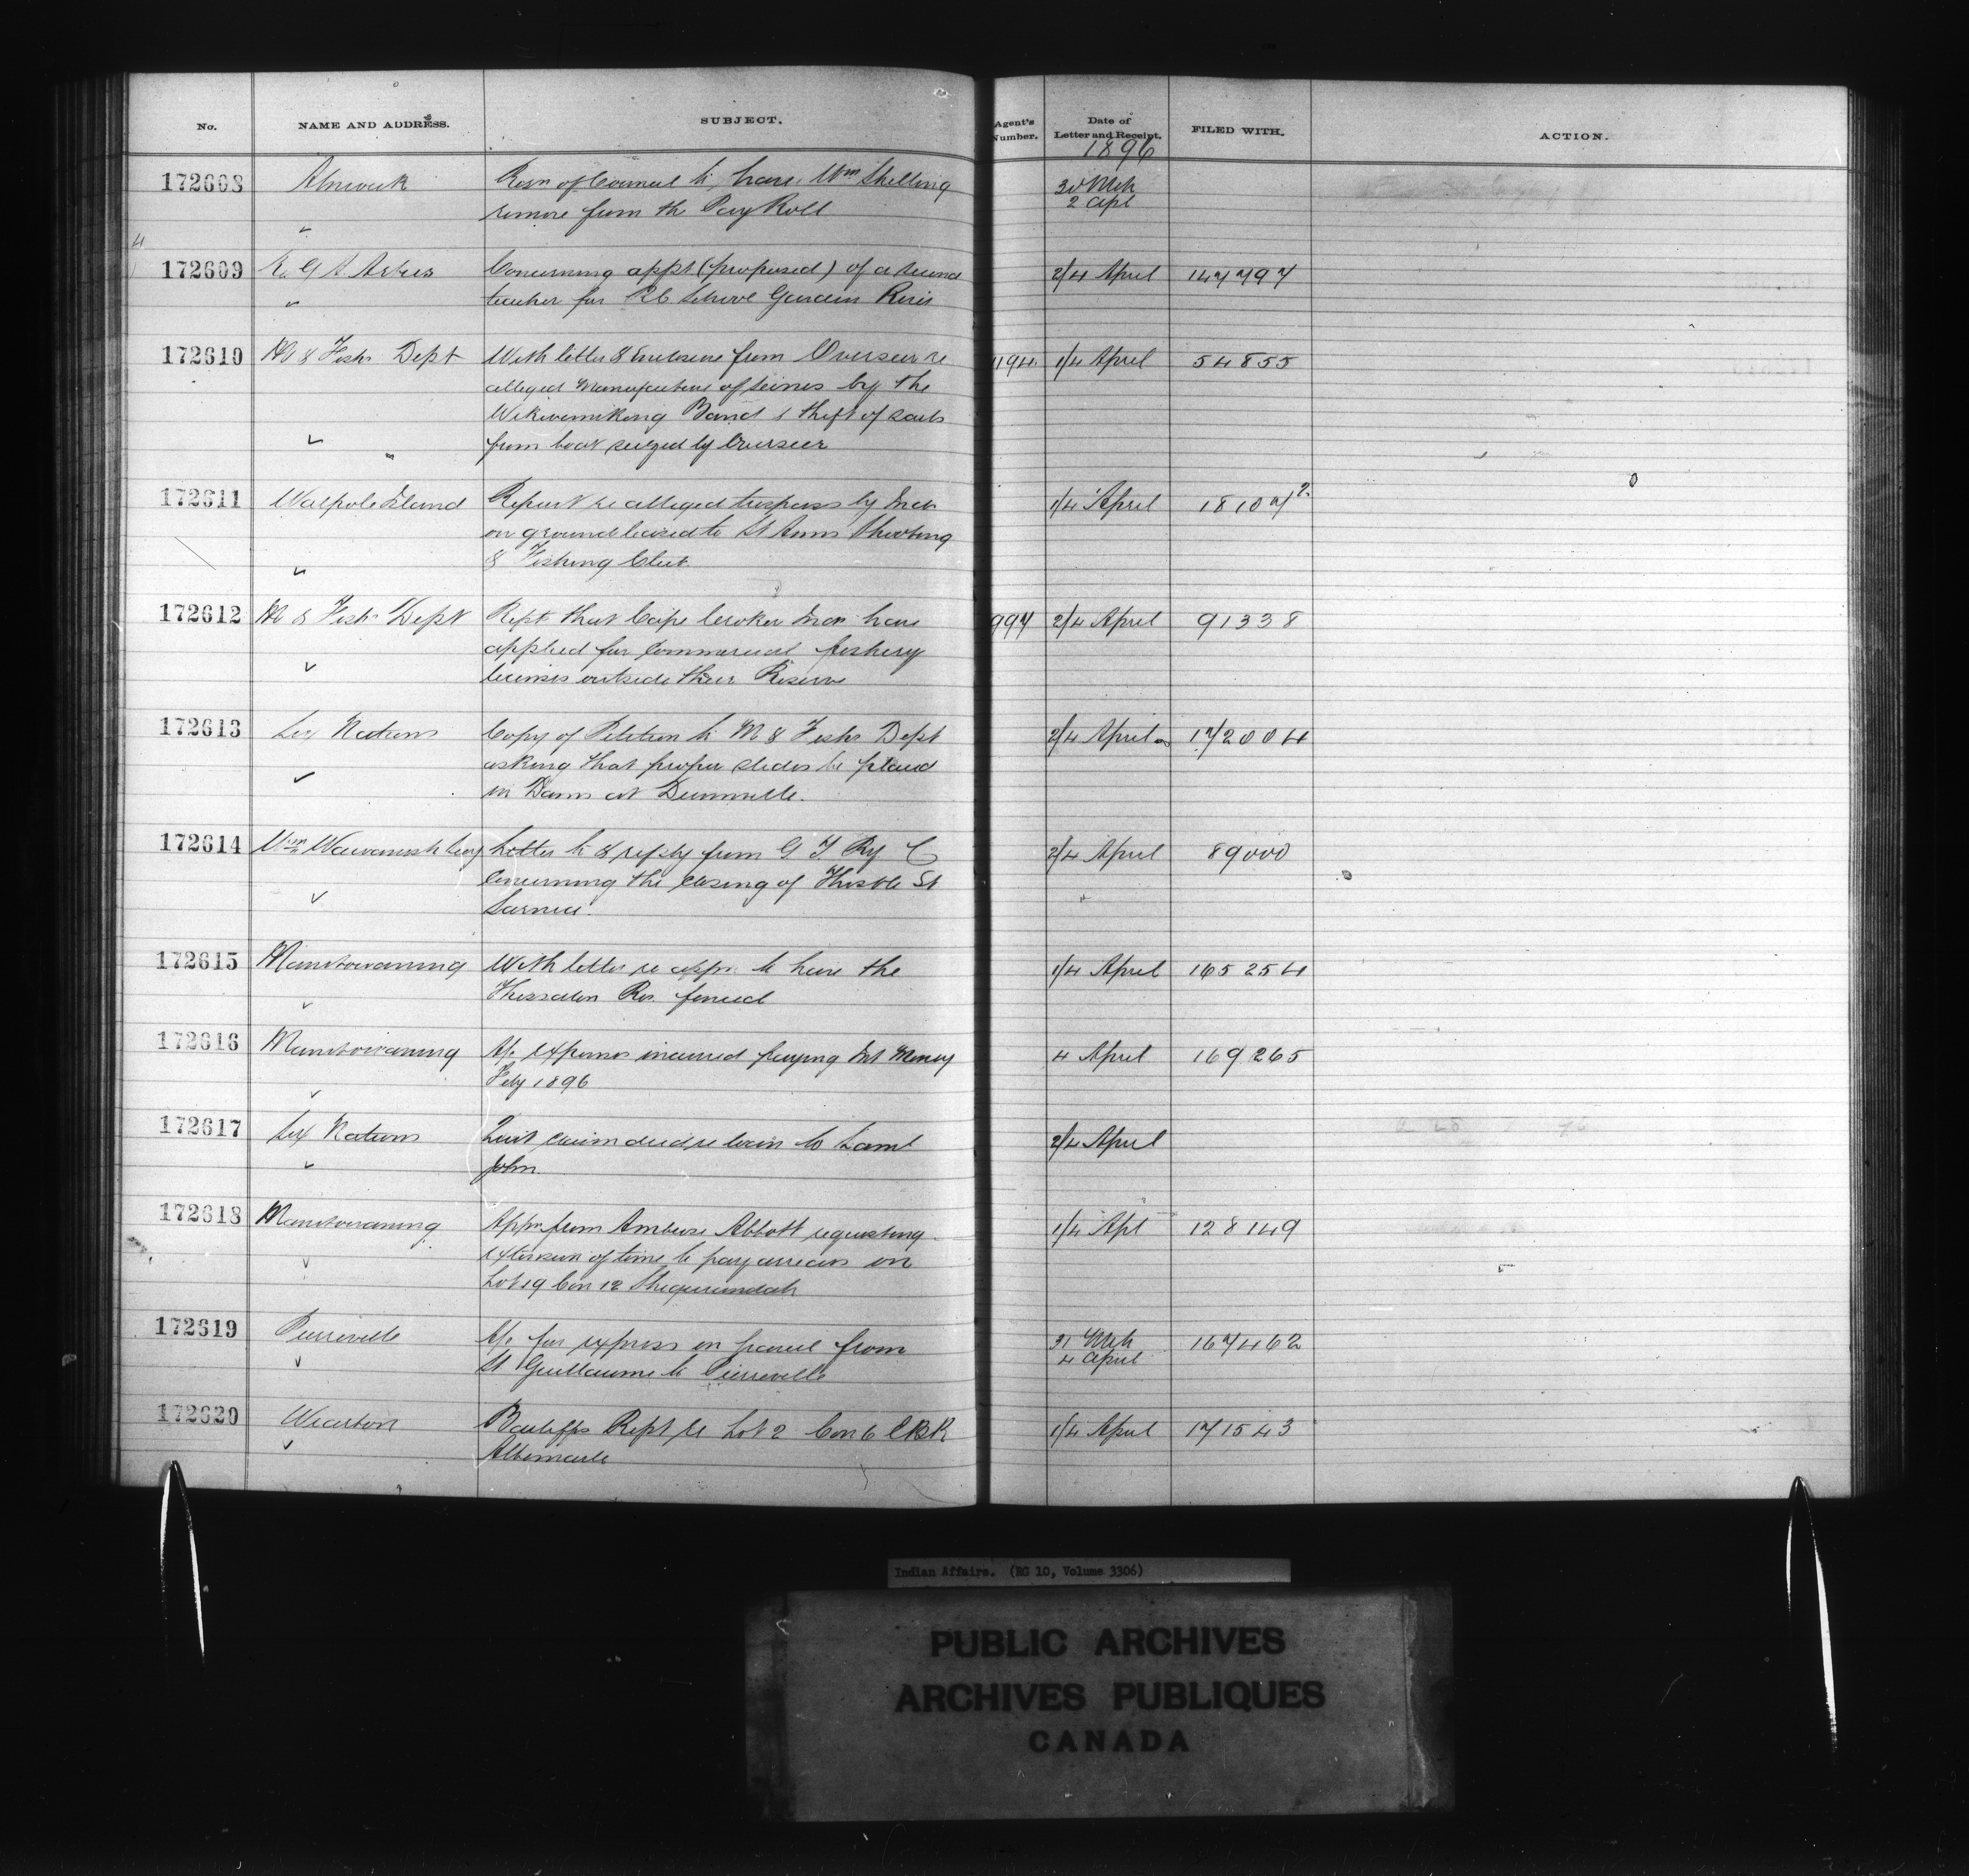 No. NAME AND ADDRESS. SUBJECT. Agent's Number. Date of Letter and Receipt. FILED WITH. ACTION.
1896
172608 Alnwick Resn of Council to have Wm Shilling 30 Mch
remove from the Pay Roll 2 Apl
172609 Concerning appt (proposed) of a second 2/4 April 147797
teacher for RC School Garden River
172610 M & Fish Dept With letter & Enclosure from Overseer re 1194 1/4 April 54855
alleged Manufacture of seines by the
Wikwemikong Band & theft of sails
from boat seized by Overseer
172611 Walpole Island Report re alleged trespass by Inds 1/4 April 18107/2
on ground leased to St Anns Shooting
& Fishing Club
172612 M & Fish Dept Rept that Cape Croker Inds have 997 2/4 April 91338
applied for Commercial fishery
licenses outside their Reserve
172613 Six Nations Copy of Petition to M & Fish Dept 2/4 April 172004
asking that proper slides be placed
in Dam at Dunnville.
172614 Wm Wawanosh Letter to & reply from G T Ry Co 2/4 April 89000
Concerning the closing of Thistle St
Sarnia.
172615 Manitowaning With letter re appn to have the 1/4 April 165254
Thessalon Res. fenced
172616 Manitowaning A/c expenses incurred paying Int Money 4 April 169265
Feby 1896
172617 Six Nations Quit claim deed re loan to Saml 2/4 April
John
172618 Manitowaning Appn from Ambrose Abbott requesting 1/4 Apl 128149
extension of time to pay arrears on
Lot 19 Con 12 Sheguiandah
172619 Pierreville A/c for express on parcel from 31 Mch 167462
St Guillaume to Pierreville 4 April
172620 Wiarton Bailiffs Rept re Lot 2 Con 6 EBR 1/4 April 171543
Albemarle
Indian Affairs. (RG 10, Volume 3306)
PUBLIC ARCHIVES
ARCHIVES PUBLIQUES
CANADA